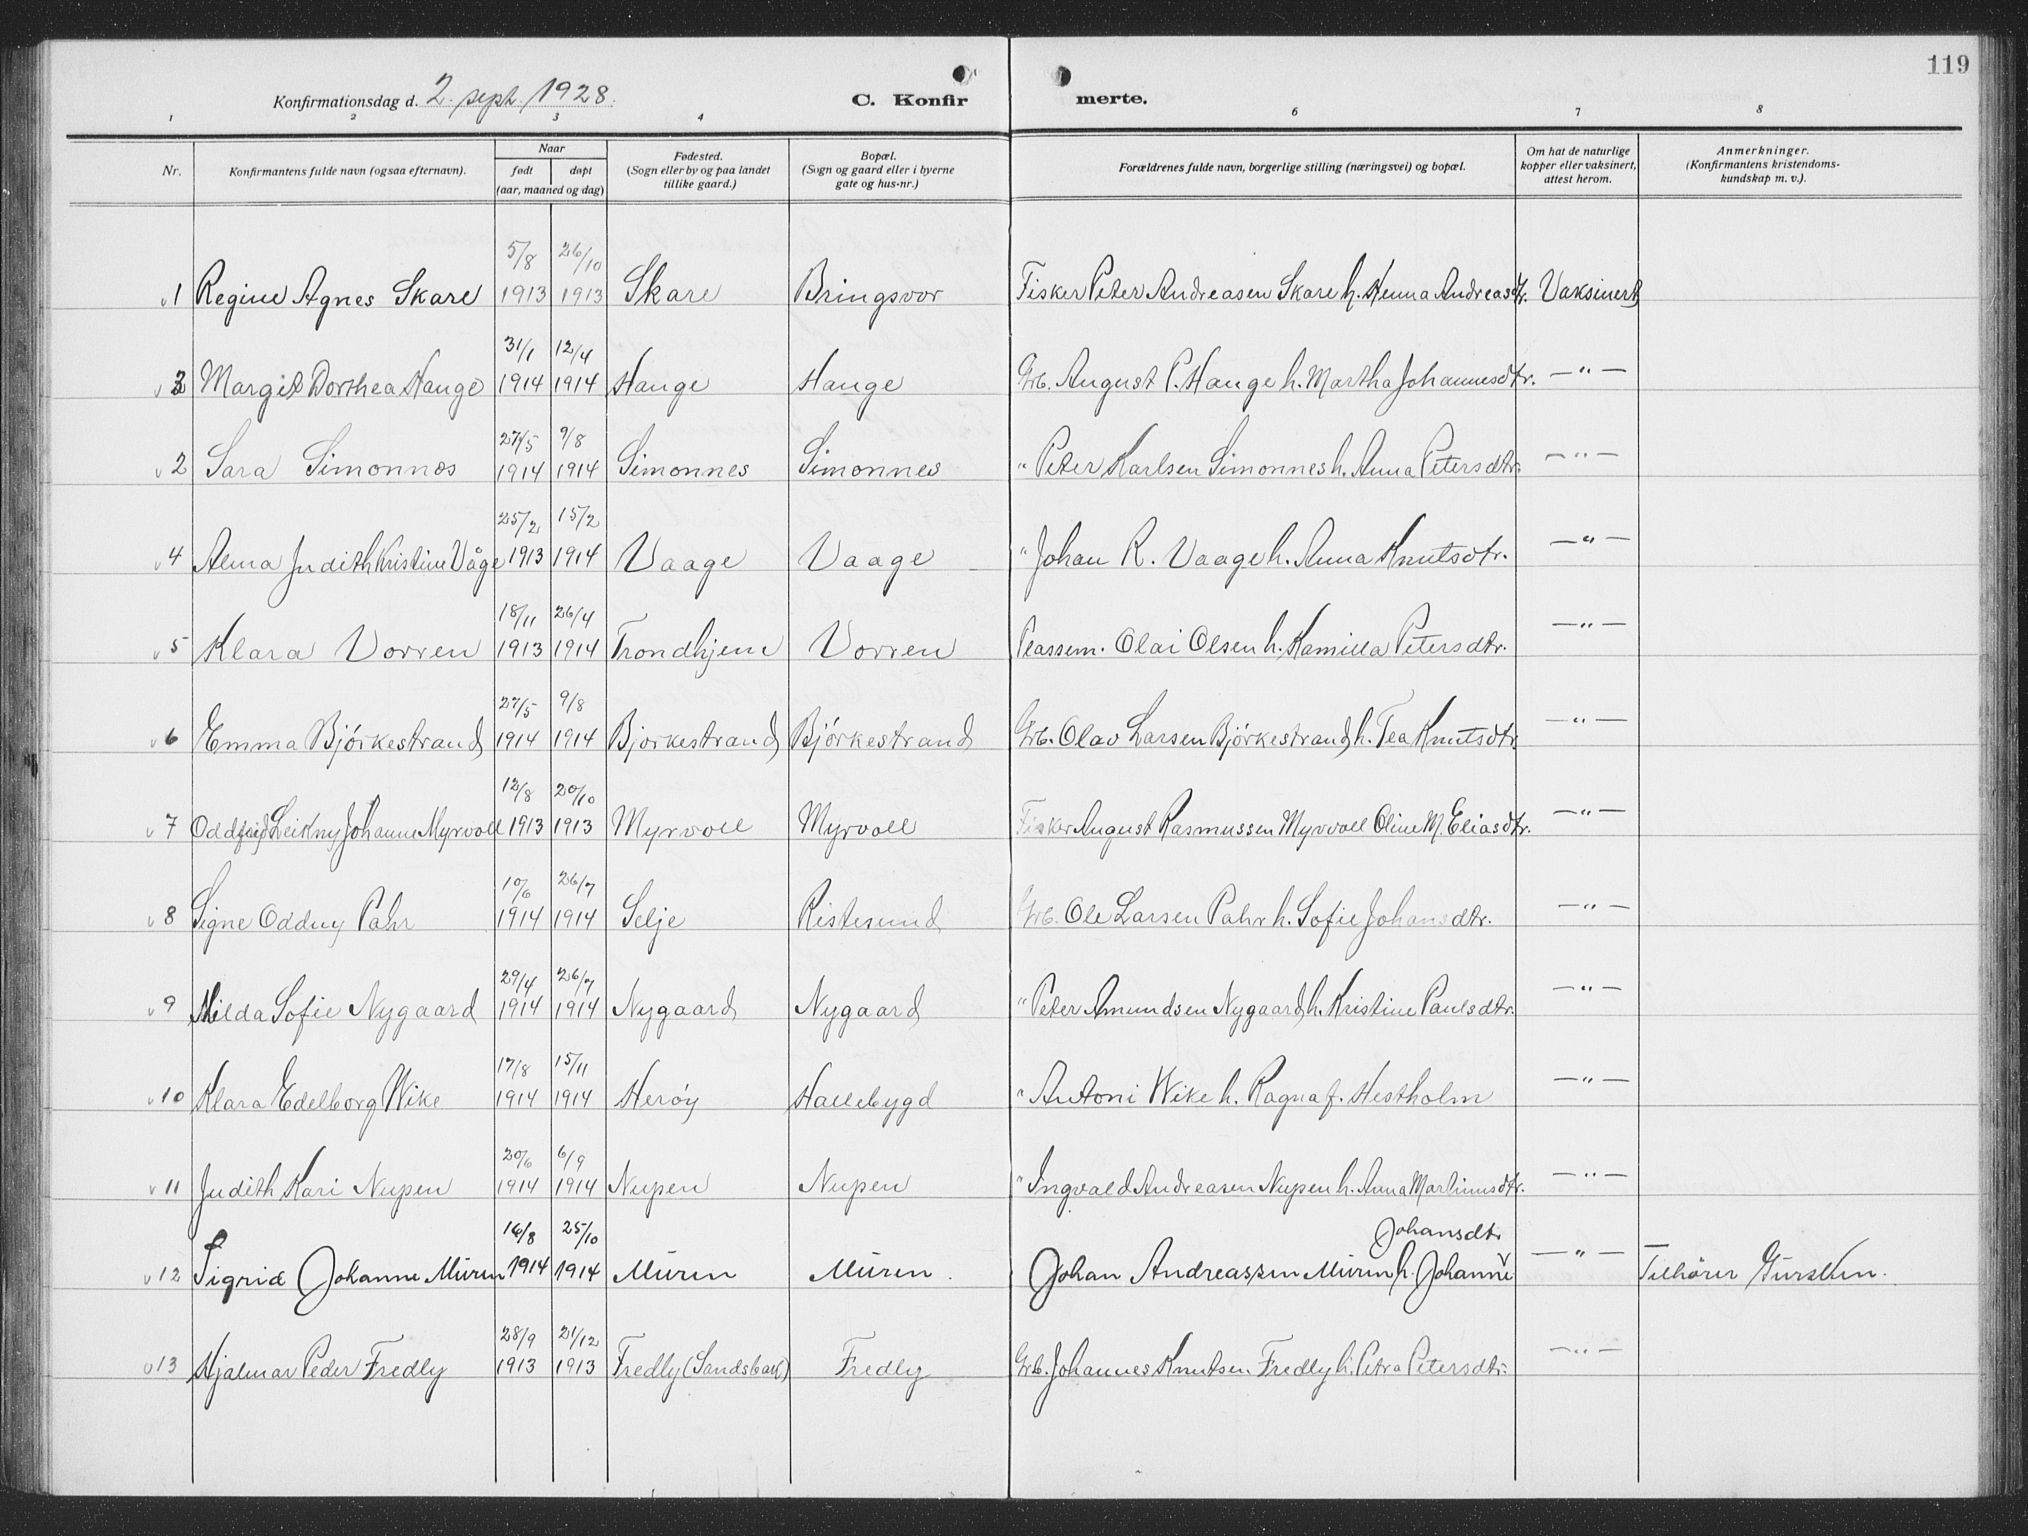 119
Konfirmationsdag d. 2. sept. 1928. C. Konfirmerte.
1 2 3 4 6 7 8
Nr. Konfirmantens fulde navn (ogsaa efternavn). Naar født døpt (aar, maaned og dag) Fødested. (Sogn eller by og paa landet tillike gaard.) Bopæl. (Sogn og gaard eller i byerne gate og hus-nr.) Forældrenes fulde navn, borgerlige stilling (næringsvei) og bopæl. Om hat de naturlige kopper eller vaksinert, attest herom. Anmerkninger. (Konfirmantens kristendoms-kundskap m. v.).
v 1 Regine Agnes Skare 5/8 1913 26/10 1913 Skare Bringsvor Fisker Peter Andreasen Skare h. Henna Andreasdtr. Vaksinert
v 3 Margit Dorthea Hauge 31/1 1914 12/4 1914 Hauge Hauge Grb. August P. Hauge h. Martha Johannesdtr. — " —
v 2 Sara Simonnes 27/5 1914 9/8 1914 Simonnes Simonnes " Peter Karlsen Simonnes h. Anna Petersdtr. — " —
v 4 Alma Judith Kristine Våge 25/2 1913 15/2 1914 Vaage Vaage " Johan R. Vaage h. Anna Knutsdtr. — " —
v 5 Klara Vorren 18/11 1913 26/4 1914 Trondhjem Vorren Plassem. Olai Olsen h. Kamilla Petersdtr. — " —
v 6 Emma Bjórkestrand 27/5 1914 9/8 1914 Bjorkestrand Bjórkestrand Grb. Olav Larsen Bjórkestrand h. Tea Knutsdtr. — " —
v 7 Oddfrid Leikny Johanne Myrvoll 12/8 1913 20/10 1913 Myrvoll Myrvoll Fisker August Rasmussen Myrvoll Oline M. Eliasdtr. — " —
v 8 Signe Oddny Pahr 10/6 1914 26/7 1914 Selje Ristesund Grb. Ole Larsen Pahr h. Sofie Johansdtr. — " —
v 9 Hilda Sofie Nygaard 29/4 1914 26/7 1914 Nygaard Nygaard " Peter Amundsen Nygaard h. Kristine Paulsdtr. — " —
v 10 Klara Edelborg Wike 17/8 1914 15/11 1914 Heróy Hallebygd " Antoni Wike h. Ragna f. Hestholm — " —
v 11 Judith Kari Nupen 20/6 1914 6/9 1914 Nupen Nupen " Ingvald Andreasen Nupen h. Anna Martinusdtr. — " —
v 12 Sigrid Johanne Muren 16/8 1914 25/10 1914 Muren Muren. Johan Andreassen Muren h. Johanne Johansdtr. — " — Tilhører Gursken.
v 13 Hjalmar Peder Fredly 28/9 1913 21/12 1913 Fredly (Sandsbak) Fredly Grb. Johannes Knutsen Fredly h. Petra Petersdtr. — " —